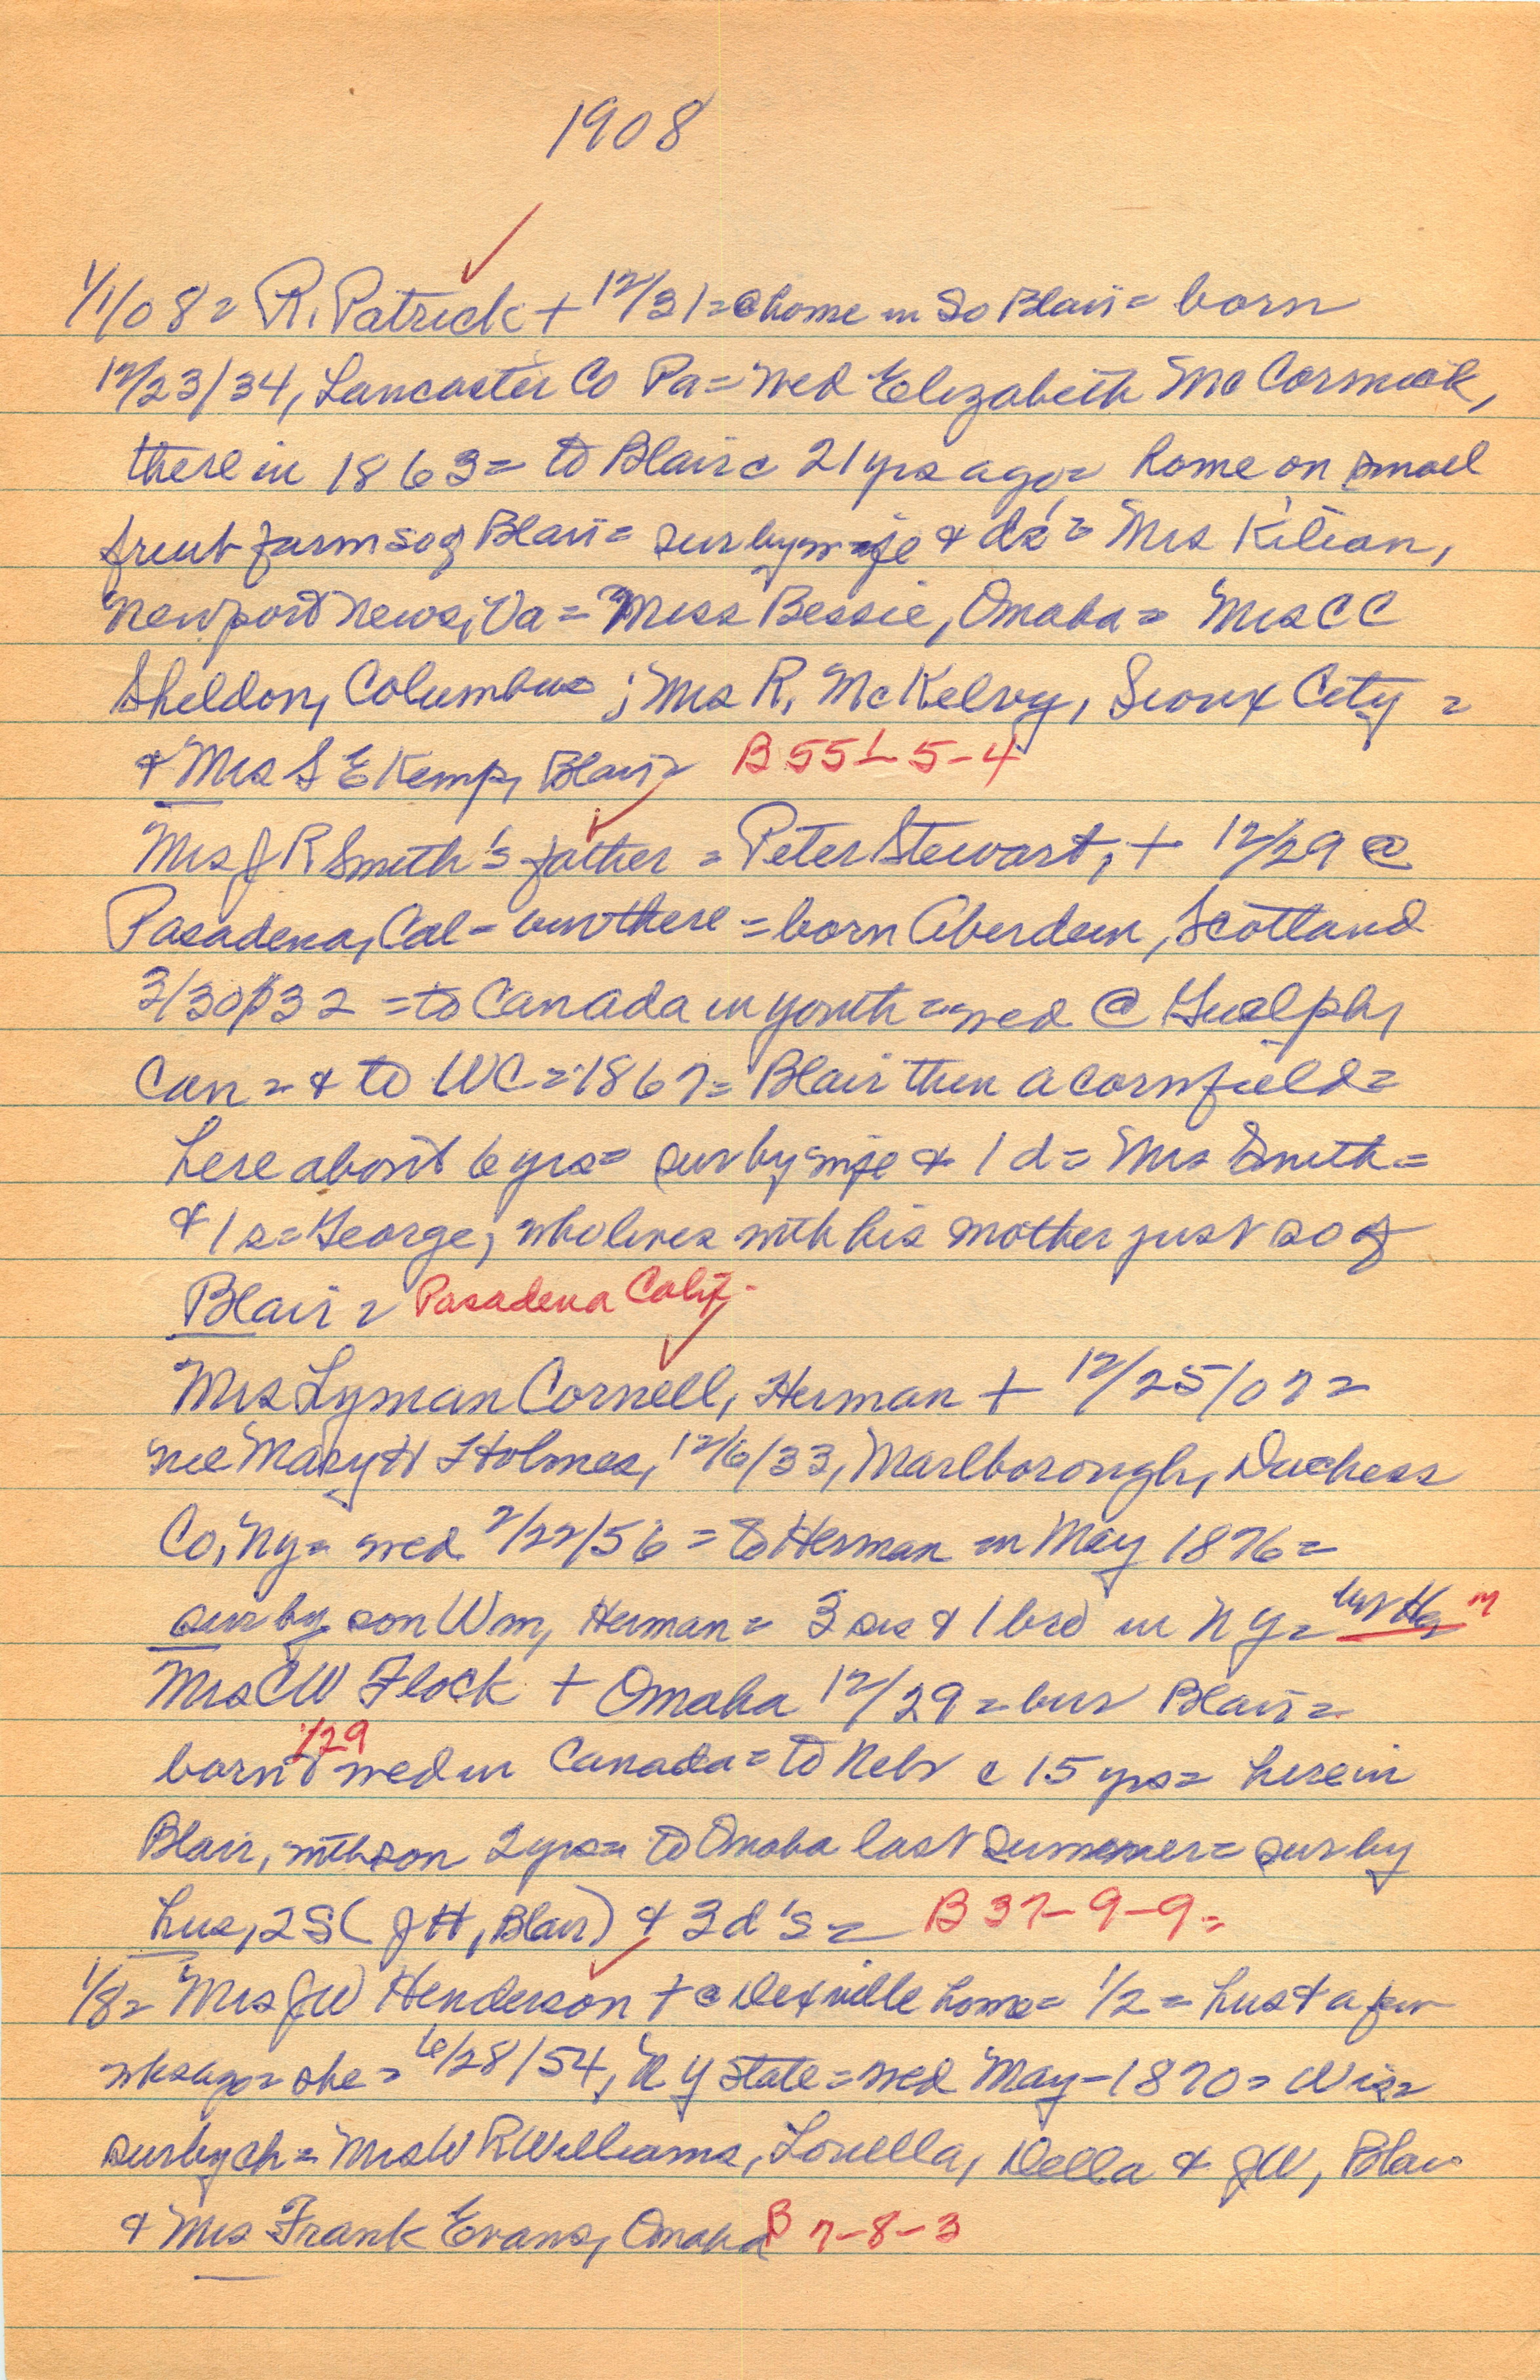 1908
1/1/08 = R. Patrick + 12/31 = @ home in So Blair = born
12/23/34, Lancaster Co Pa = wed Elizabeth McCormick,
there in 1863 = to Blair c 21 yrs ago = home on small
fruit farm so of Blair = sur by wife & d's = Mrs Kilian,
Newport News, Va = Miss Bessie, Omaha = Mrs C C
Sheldon, Columbus; Mrs R. McKelvy, Sioux City =
& Mrs S E Kemp, Blair = B 55 L 5-4
Mrs J R Smith's father = Peter Stewart, + 12/29 @
Pasadena, Cal - bur there = born Aberdeen, Scotland
3/30/32 = to Canada in youth = wed @ Guelph,
Can = & to WC = 1867 = Blair then a cornfield =
here about 6 yrs = sur by wife & 1 d = Mrs Smith =
& 1 s = George, who lives with his mother just so of
Blair = Pasadena Calif.
Mrs Lyman Cornell, Herman + 12/25/07 =
nee Mary H Holmes, 12/6/33, Marlborough, Duchess
Co, NY = wed 2/22/56 = to Herman in May 1876 =
sur by son Wm, Herman = 3 sis & 1 bro in NY = bur
Mrs CW Flock + Omaha 12/29 = bur Blair =
1/29
born & wed in Canada = to Nebr c 15 yrs = here in
Blair, with son 2 yrs = to Omaha last summer = sur by
hus, 2 S (J H, Blair) & 3 d's = B 37-9-9 =
1/8 = Mrs JW Henderson + @ Dexville home = 1/2 = hus + a few
wks ago = she = 6/28/54, N Y state = wed May-1870 = Wis =
sur by ch = Mrs W R Williams, Louella, Della & JW, Blair
& Mrs Frank Evans, Omaha B 7-8-3